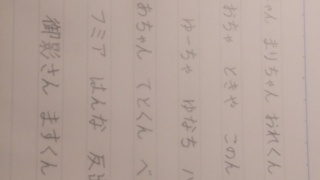 ん まりちゃん おれくん
おちゃ ときや このん
ゆっちゃ ゆなち
あちゃん てとくん ぺ
フミア はんな 反
御影さん ますくん